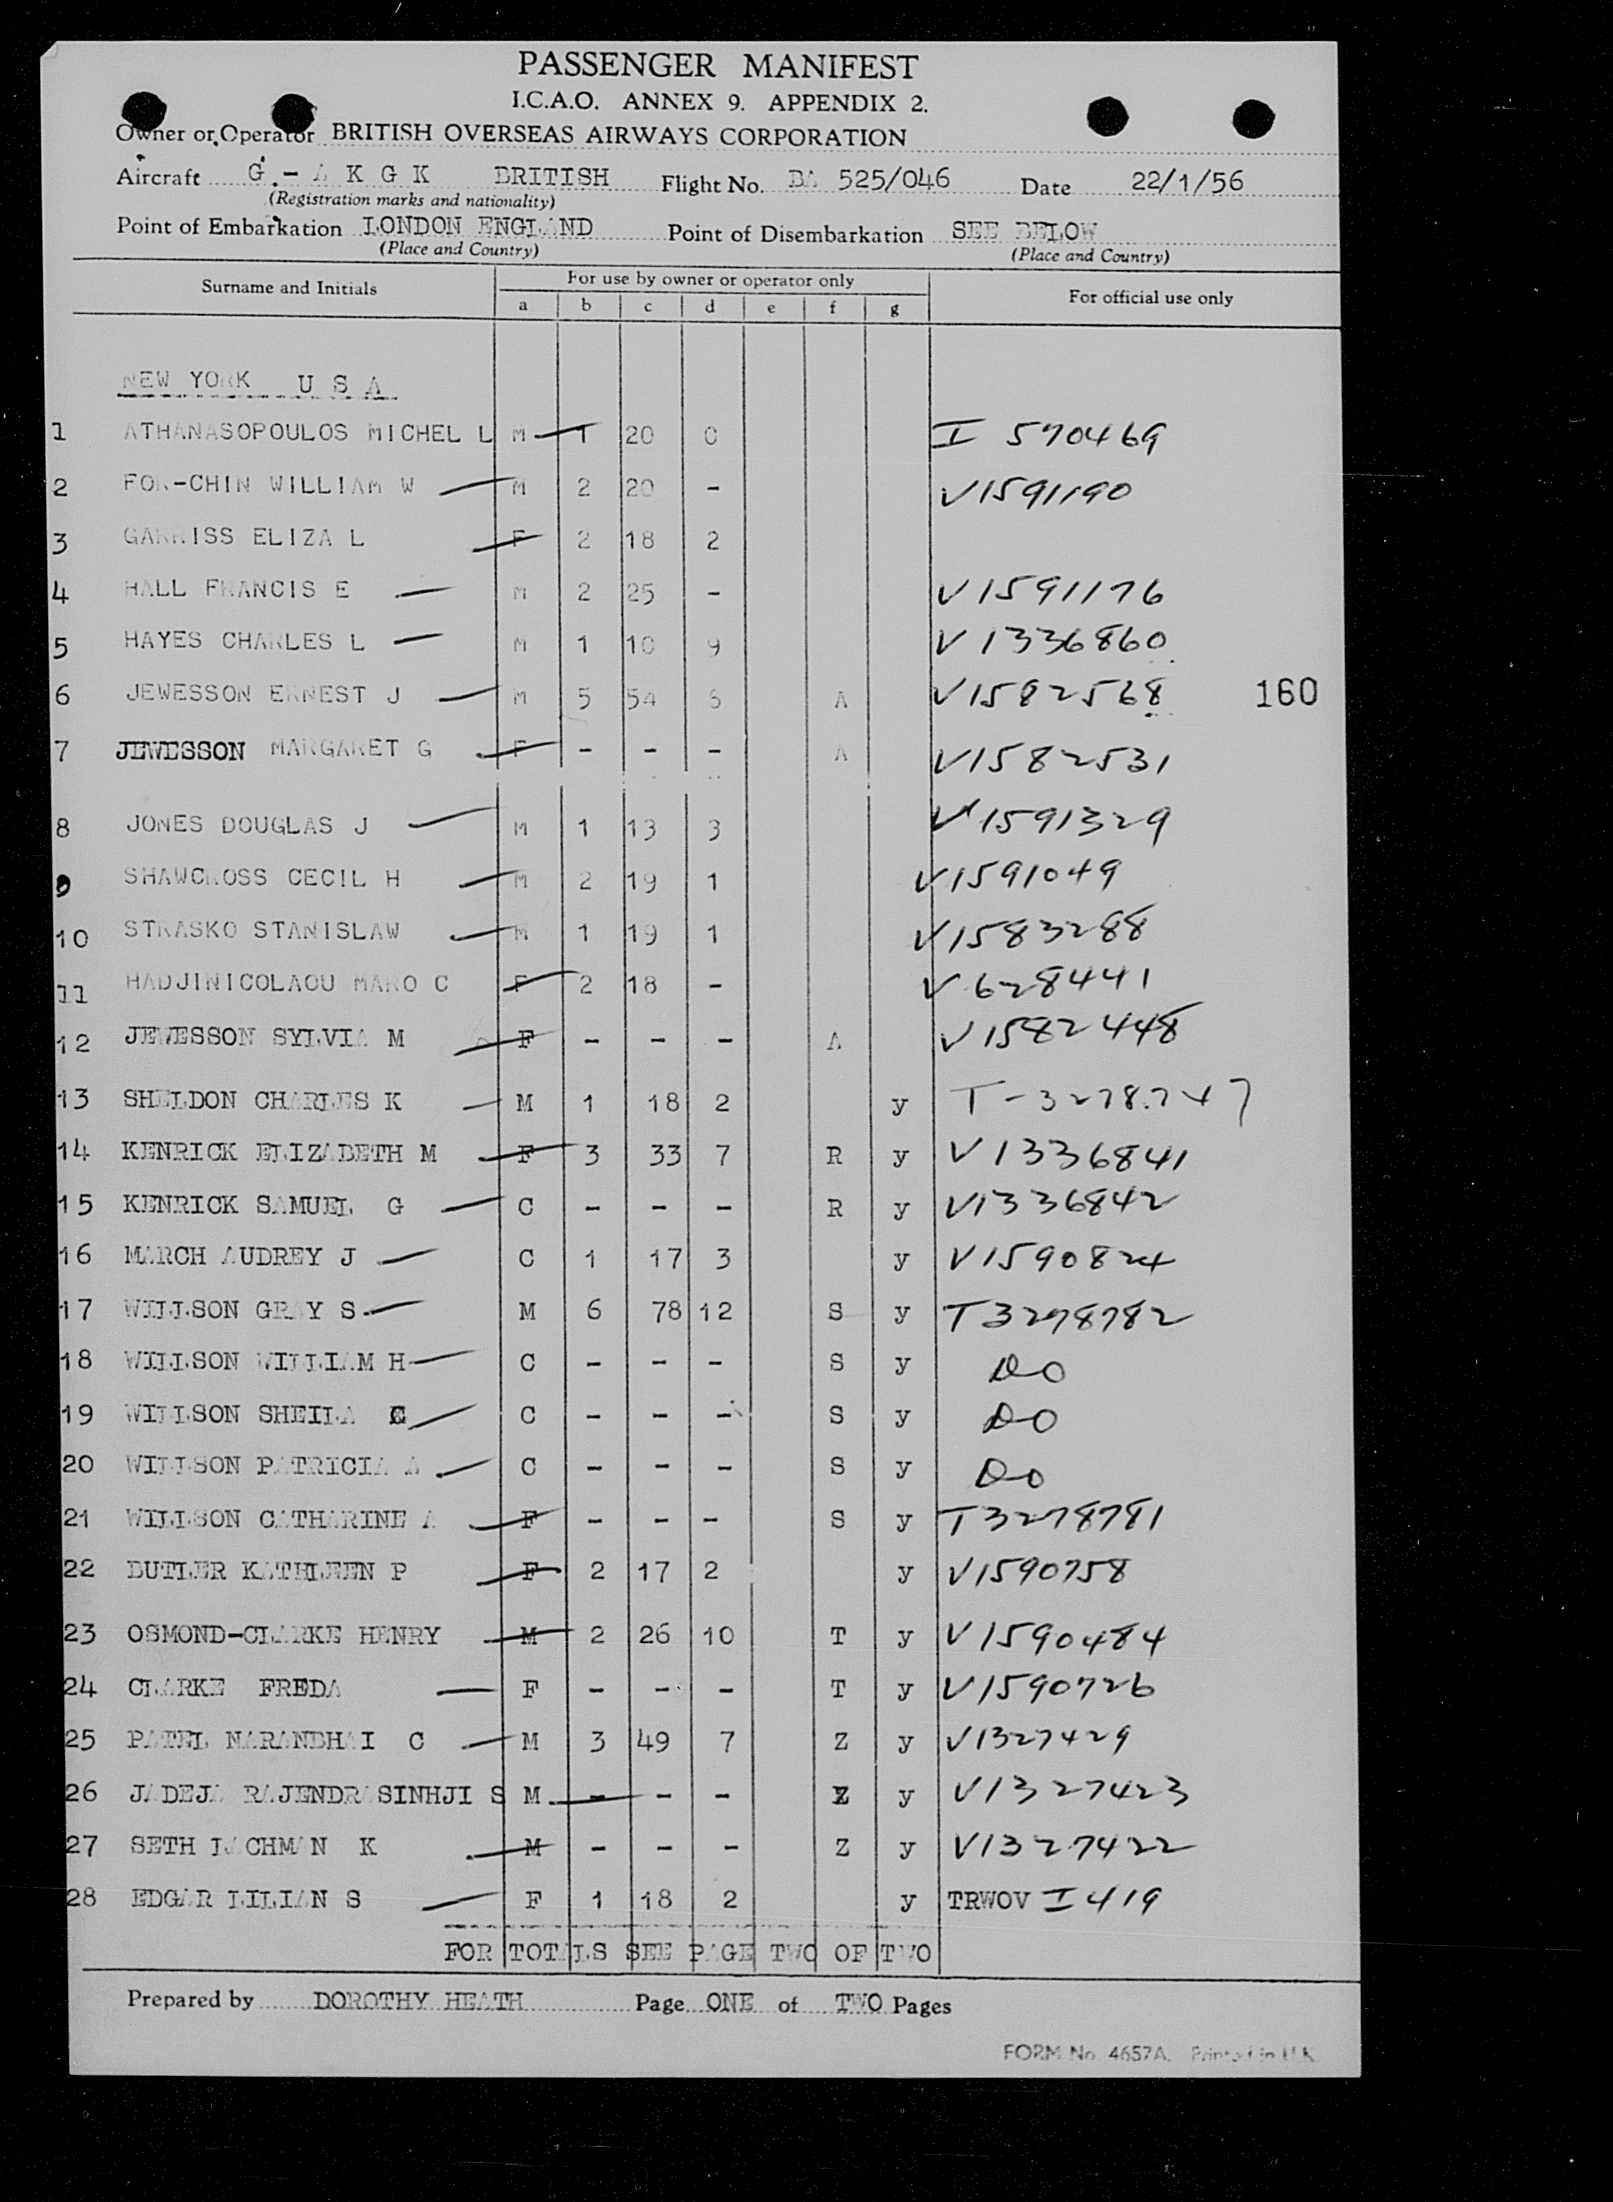 PASSENGER MANIFEST
I.C.A.O. ANNEX 9. APPENDIX 2.
Owner or Operator BRITISH OVERSEAS AIRWAYS CORPORATION
Aircraft G - A K G K BRITISH Flight No. BA 525/046 Date 22/1/56
(Registration marks and nationality)
Point of Embarkation LONDON ENGLAND Point of Disembarkation SEE BELOW
(Place and Country) (Place and Country)
Surname and Initials For use by owner or operator only For official use only
a b c d e f g
NEW YORK U S A
1 ATHANASOPOULOS MICHEL L M 1 20 0 I 570469
2 FOK-CHIN WILLIAM W M 2 20 - V1591190
3 GARRISS ELIZA L F 2 18 2
4 HALL FRANCIS E M 2 25 - V1591176
5 HAYES CHARLES L M 1 10 9 V1336860
6 JEWESSON ERNEST J M 5 54 6 A V1582568 160
7 JEWESSON MARGARET G F - - - A V1582531
8 JONES DOUGLAS J M 1 13 3 V1591329
9 SHAWCROSS CECIL H M 2 19 1 V1591049
10 STRASKO STANISLAW M 1 19 1 V1583288
11 HADJINICOLAOU MARO C F 2 18 - V628441
12 JEWESSON SYLVIA M F - - - A V1582448
13 SHELDON CHARLES K M 1 18 2 y T-3278747
14 KENRICK ELIZABETH M F 3 33 7 R y V1336841
15 KENRICK SAMUEL G C - - - R y V1336842
16 MARCH AUDREY J C 1 17 3 y V1590824
17 WILLSON GRAY S M 6 78 12 S y T3278782
18 WILLSON WILLIAM H C - - - S y DO
19 WILLSON SHEILA C C - - - S y DO
20 WILLSON PATRICIA A C - - - S y DO
21 WILLSON CATHARINE A F - - - S y T3278781
22 BUTLER KATHLEEN P F 2 17 2 y V1590758
23 OSMOND-CLARKE HENRY M 2 26 10 T y V1590484
24 CLARKE FREDA F - - - T y V1590726
25 PATEL NARANBHAI C M 3 49 7 Z y V1327429
26 JADEJA RAJENDRASINHJI S M - - - Z y V1327423
27 SETH LACHMAN K M - - - Z y V1327422
28 EDGAR LILIAN S F 1 18 2 y TRWOV I 419
FOR TOTALS SEE PAGE TWO OF TWO
Prepared by DOROTHY HEATH Page ONE of TWO Pages
FORM No. 4657A. Printed in U.K.